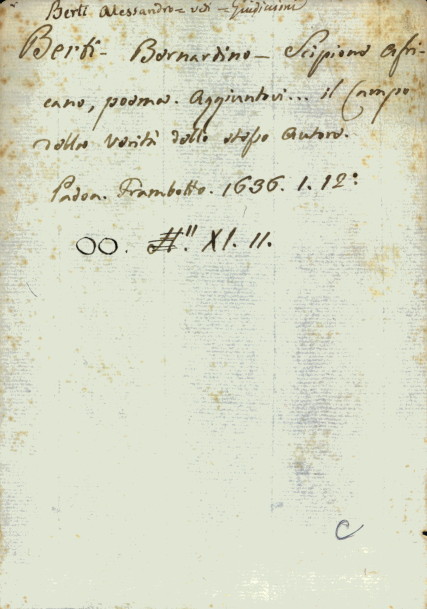 Berti Alessandro = vedi = Giudicioni
Berti - Bernardino - Scipione Afri-
cano, poema. Aggiuntovi... il Campo
della verità dello stesso Autore.
Padoa. Frambotto. 1636. 1. 12°:
OO. #." XI. 11.
C